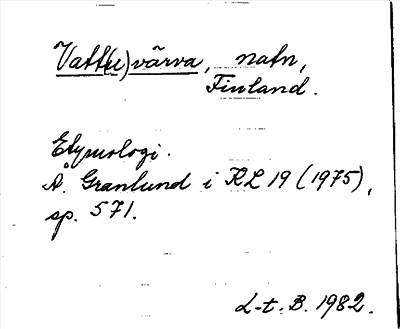 Vatt(u)värva, natn,
Finland.
Etymologi.
Å. Granlund i KL 19 (1975),
sp. 571.
L-t. B. 1982.